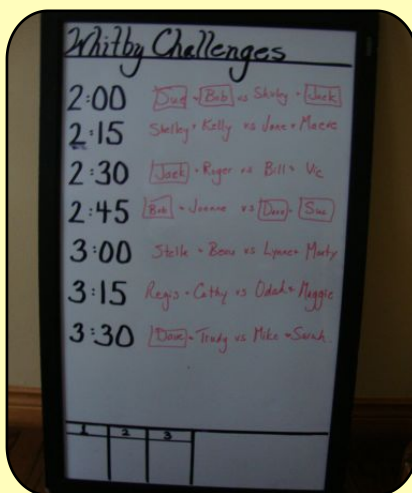 Whitby Challenges
2:00 Bob vs Shirley + Jack
2:15 Shelley + Kelly vs Jane +
2:30 Jack + Roger vs Bill + Vic
2:45 Bob + Joanne vs Dave + Sue
3:00 Stella + vs Lynne + Marty
3:15 Regis + Cathy vs + Maggie
3:30 Dave + Trudy vs Mike + Sarah.
1 2 3